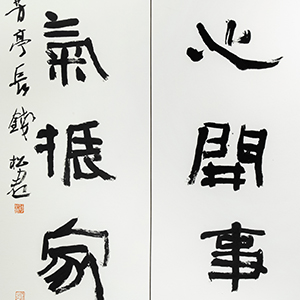 心開事
氣振家
亭長錢松